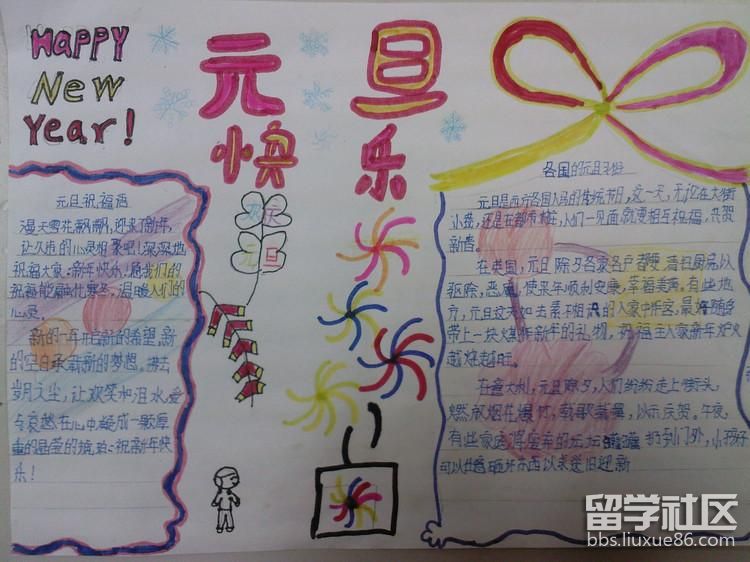 Happy
New
Year!
元旦
快乐
欢庆
元旦
元旦祝福语
漫天雪花飘飘,迎来了新年,
让久违的心灵相聚吧!深深地
祝福大家:新年快乐!愿我们的
祝福能融化寒冬,温暖人们的
心灵。
新的一年开启新的希望,新
的空白承载新的梦想。拂去
岁月之尘,让欢笑和泪水、爱
与哀愁在心中凝成一颗厚
重的晶莹的 祝新年快
乐!
各国的元旦习俗
元旦是西方各国人民的传统节日,这一天,无论在大街
小巷,还是在 人们一见面就要相互祝福,共贺
新春。
在英国,元旦除夕各家各户都要清扫厨房以
驱除,恶 使来年顺利安康,幸福美满。有些地
方,元旦这天如去素不相识的人家中作客,最好随身
带上一块煤作新年的礼物,祝福主人家新年炉火
越烧越旺。
在意大利,元旦除夕,人们纷纷走上街头,
燃放烟花爆竹,载歌载舞,以示庆贺。午夜,
有些家庭 扔到门外,小孩子
可以 东西以求送旧迎新
留学社区
bbs.liuxue86.com